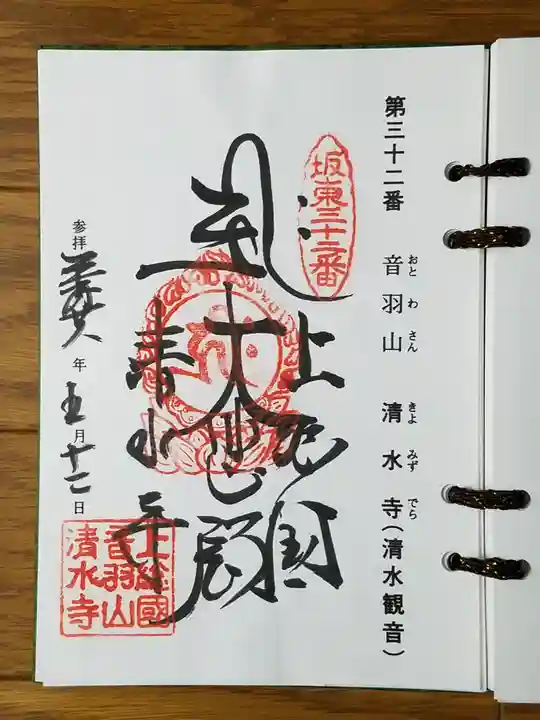 第三十二番 音羽山 清水寺(清水観音)
おと わ さん きよ みず でら
坂東三十二番
上総国
大悲殿
清水寺
参拝 年 五月十二日
上総國
音羽山
清水寺